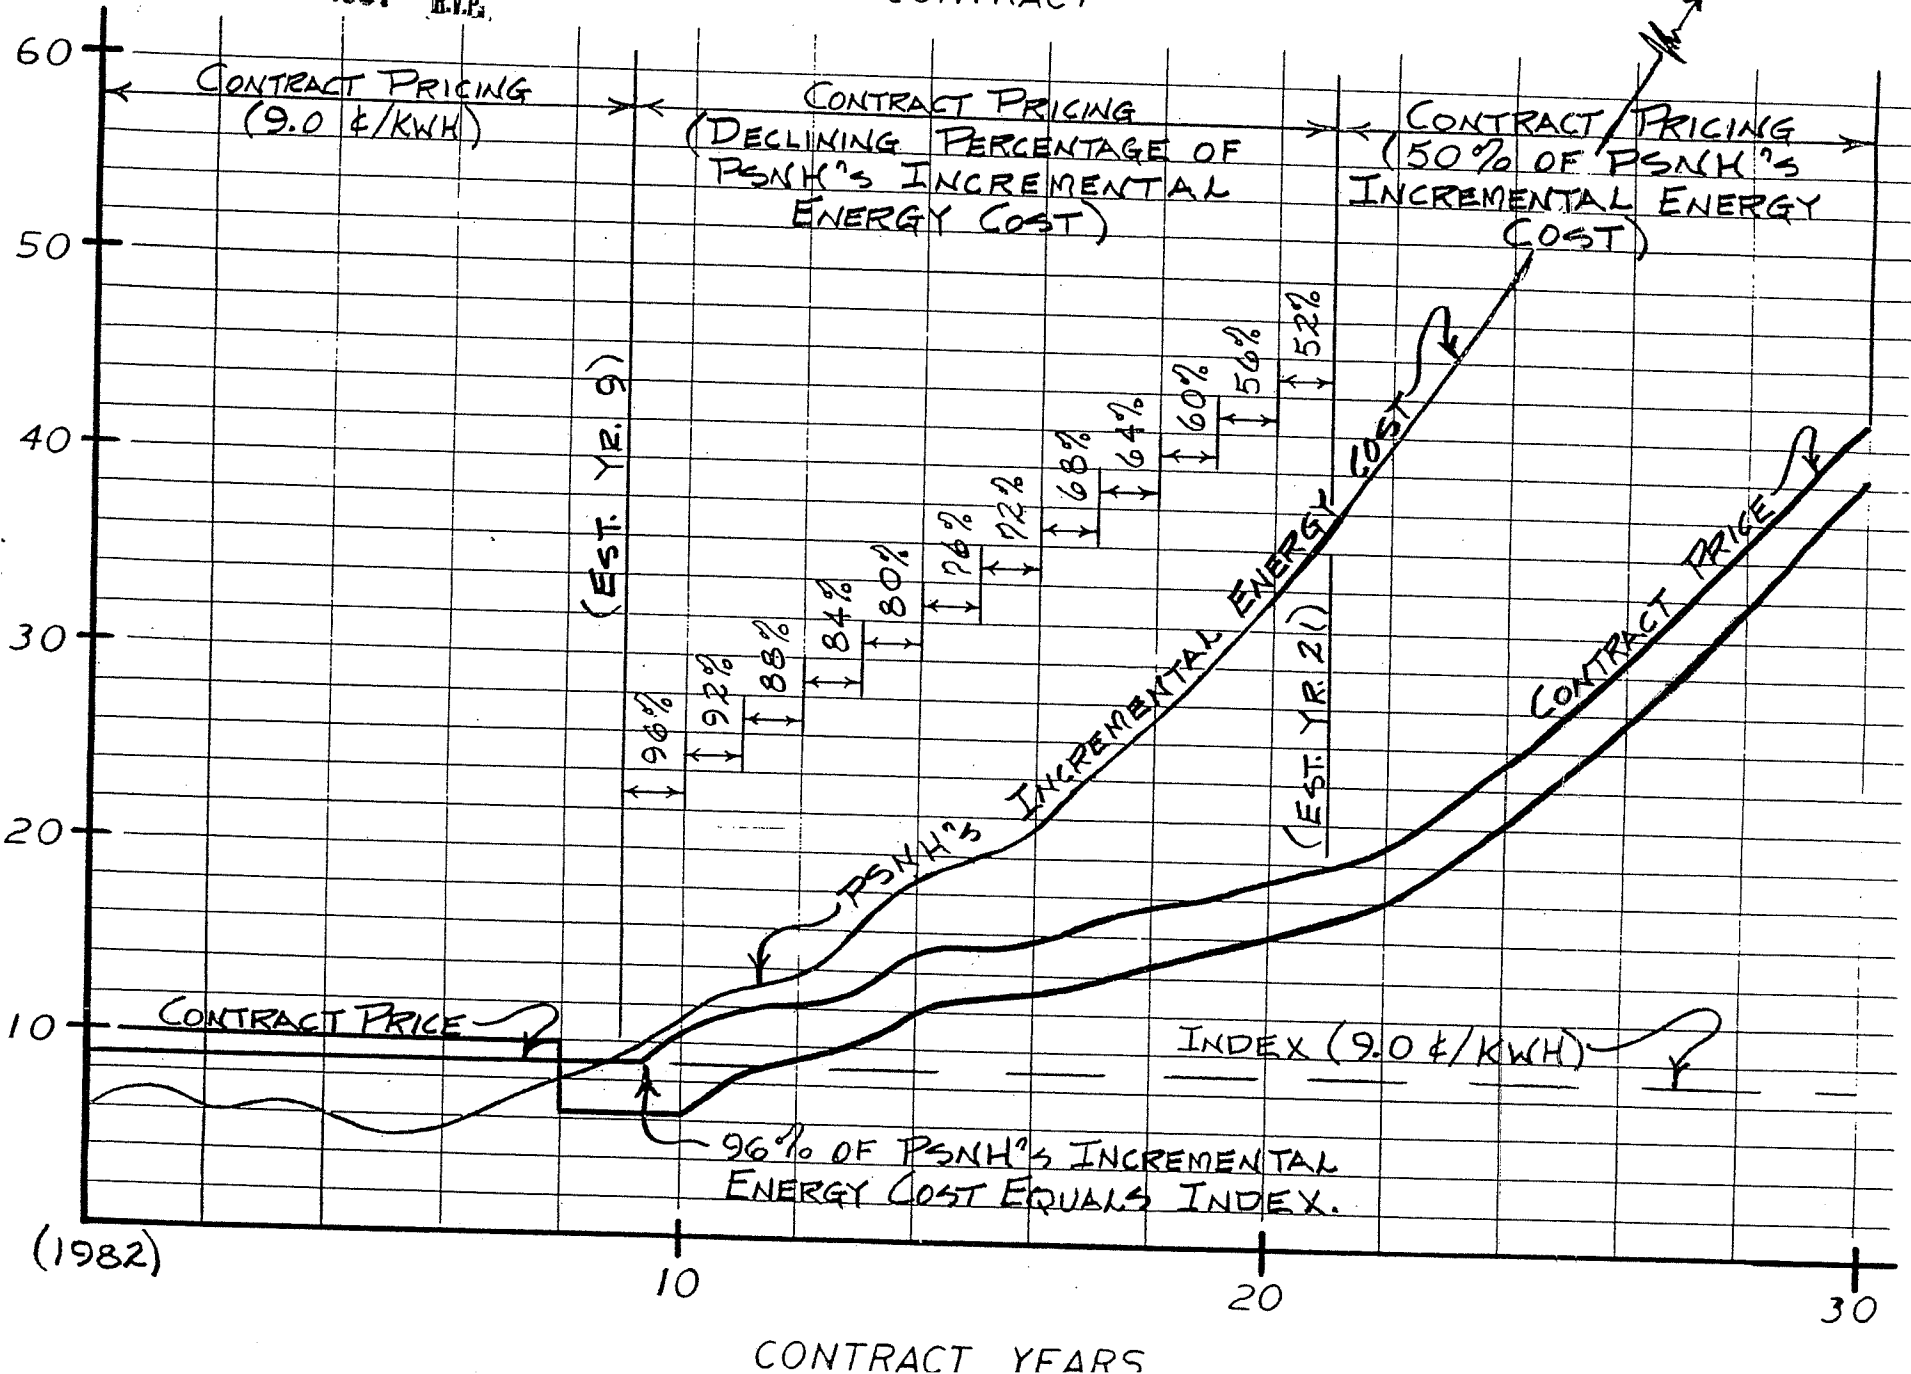 CONTRACT
60
50
40
30
20
10
CONTRACT PRICING
(9.0 ¢/KWH)
CONTRACT PRICING
(DECLINING PERCENTAGE OF
PSNH'S INCREMENTAL
ENERGY COST)
CONTRACT PRICING
(50% OF PSNH'S
INCREMENTAL ENERGY
COST)
(EST. YR. 9)
96%
92%
88%
84%
80%
76%
72%
68%
64%
60%
56%
52%
(EST. YR. 21)
PSNH'S INCREMENTAL ENERGY COST
CONTRACT PRICE
CONTRACT PRICE
INDEX (9.0 ¢/KWH)
96% OF PSNH'S INCREMENTAL
ENERGY COST EQUALS INDEX.
(1982)
10
20
30
CONTRACT YEARS